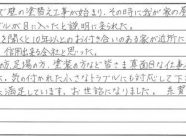 で壁の塗替え工事が始まり、その時に我が家の屋
ルが目に入ったと説明に来られた。
を聞くと10年以上のお付き合いのある家が近所に
信用出来る会社と思った。
方、足場の方、塗装の方など皆さま真面目な仕事
気の付かれた小さなトラブルにも対応して下
満足しています。お世話になりました。